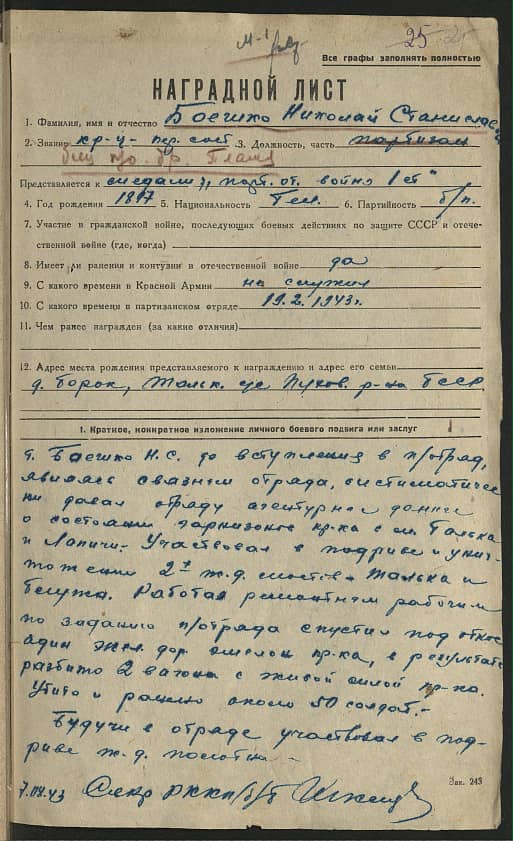 М-1
25
Все графы заполнять полностью
НАГРАДНОЙ ЛИСТ
1. Фамилия, имя и отчество Боешко Николай Станислав
2. Звание кр-ц- 3. Должность, часть партизан
Представляется к медали "парт. от. войн" 1 ст"
4. Год рождения 1897 5. Национальность бел. 6. Партийность б/п.
7. Участие в гражданской войне, последующих боевых действиях по защите СССР и отече-
ственной войне (где, когда)
8. Имеет ли ранения и контузии в отечественной войне да
9. С какого времени в Красной Армии не служил
10. С какого времени в партизанском отряде 19.2.1943г.
11. Чем ранее награжден (за какие отличия)
12. Адрес места рождения представляемого к награждению и адрес его семьи
д. Борок, Тальк. с/с Пухов. р-на БССР.
1. Краткое, конкретное изложение личного боевого подвига или заслуг
т. Баешко Н.С. до вступления в п/отряд,
являясь связным отряда, систиматичес
ки давал отряду агентурные данные
о состоянии гарнизонов пр-ка с м. Талька
и Лапичи. Участвовал в подриве и унич-
тожении 2х ж.д. мостов Талька и
Работая ремонтным рабочим
по заданию п/отряда спустил под откос
адин жел. дор. эшелон пр-ка, в результате
разбито 2 вагона с живой силой пр-ка.
Убито и ранено около 50 солдат.-
Будучи в отряде участвовал в под-
риве ж.д. полотна -
43 Секр РККП/б/Б
Зак. 243